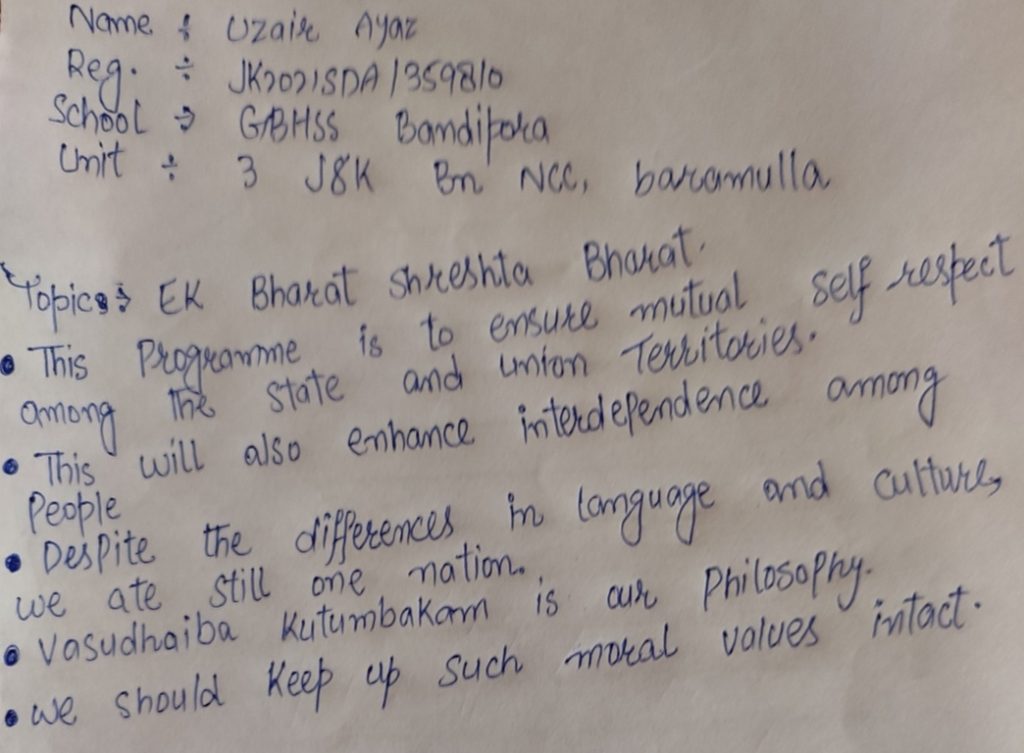 Name ÷ Uzair Ayaz
Reg. ÷ JK2021SDA/359810
School ⇒ GBHSS Bandipora
Unit ÷ 3 J&K Bn NCC, baramulla
Topic ⇒ EK Bharat Shreshta Bharat.
• This Programme is to ensure mutual self respect
among the state and union Territories.
• This will also enhance interdependence among
People
• Despite the differences in language and culture,
we ate still one nation.
• Vasudhaiba Kutumbakam is our Philosophy.
• we should keep up such moral values intact.